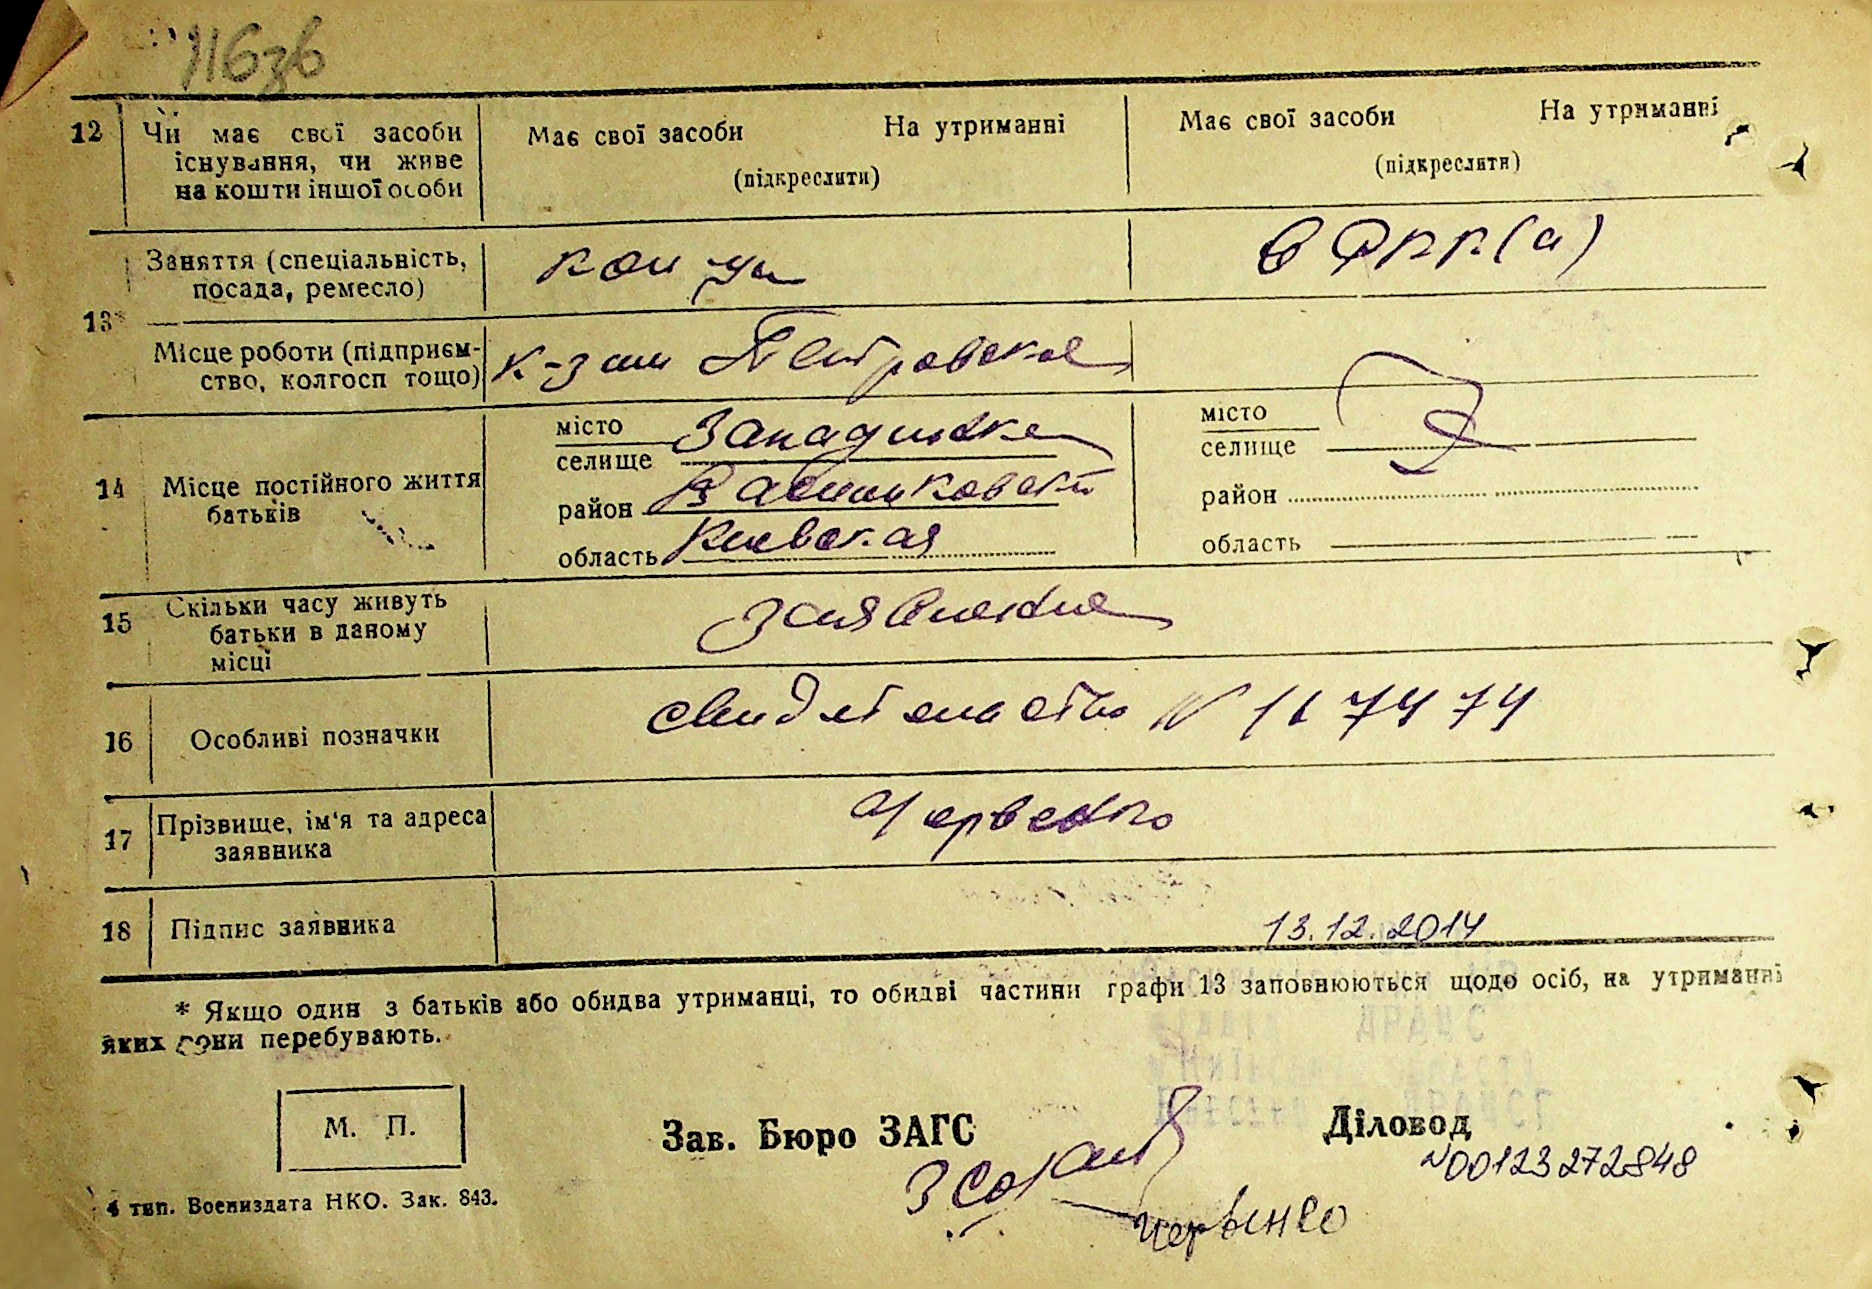 116зв
12 Чи має свої засоби існування, чи живе на кошти іншої особи
Має свої засоби На утриманні
(підкреслити)
Має свої засоби На утриманні
(підкреслити)
13*
Заняття (спеціальність, посада, ремесло)
в ФРКК(а)
Місце роботи (підприємство, колгосп тощо)
Петровское
14 Місце постійного життя батьків
місто
селище Западинка
район
область Киевская
місто
селище
район
область
15 Скільки часу живуть батьки в даному місці
16 Особливі позначки
свидетельство N 117474
17 Прізвище, ім'я та адреса заявника
Червенко
18 Підпис заявника
13.12.2014
* Якщо один з батьків або обидва утриманці, то обидві частини графи 13 заповнюються щодо осіб, на утриманні
яких вони перебувають.
М. П.
Зав. Бюро ЗАГС
Діловод
N00123272848
4 тип. Воениздата НКО. Зак. 843.